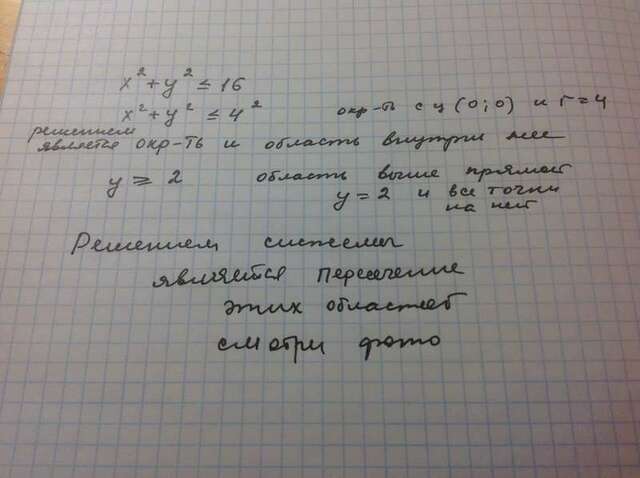 x² + y² ≤ 16
x² + y² ≤ 4² окр-ть с ц (0;0) и r = 4
решением
является окр-ть и область внутри нее
y ≥ 2 область выше прямой
y = 2 и все точки
на ней
Решением системы
является пересечение
этих областей
смотри фото